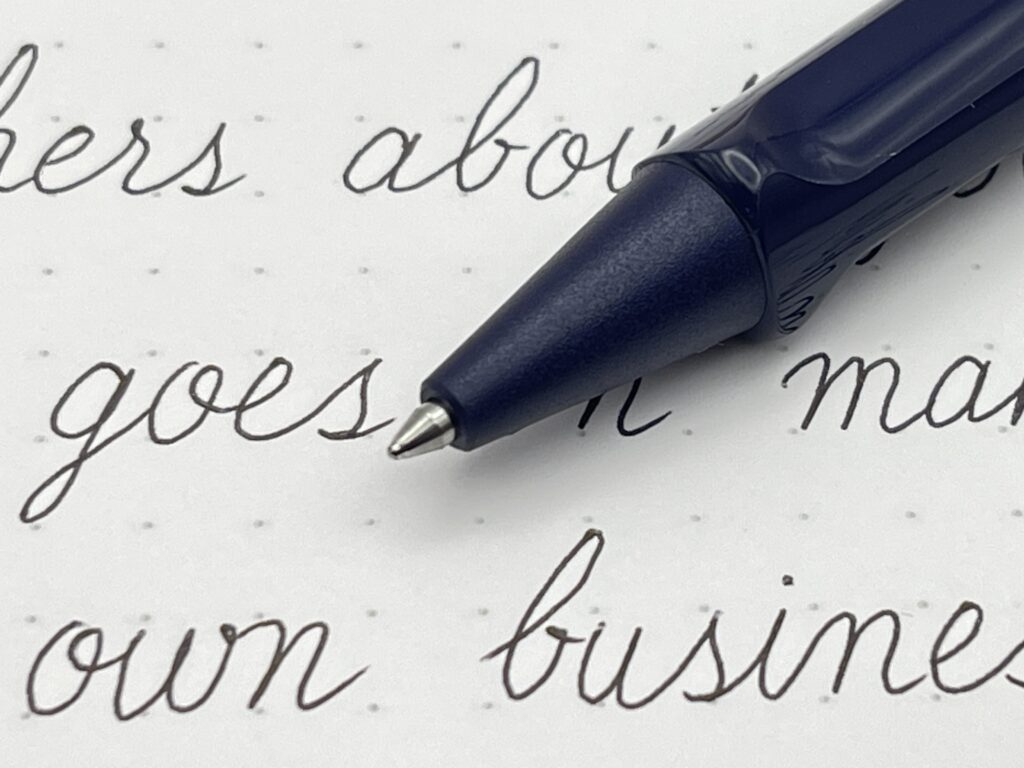 hers abou
goes n ma
own busines